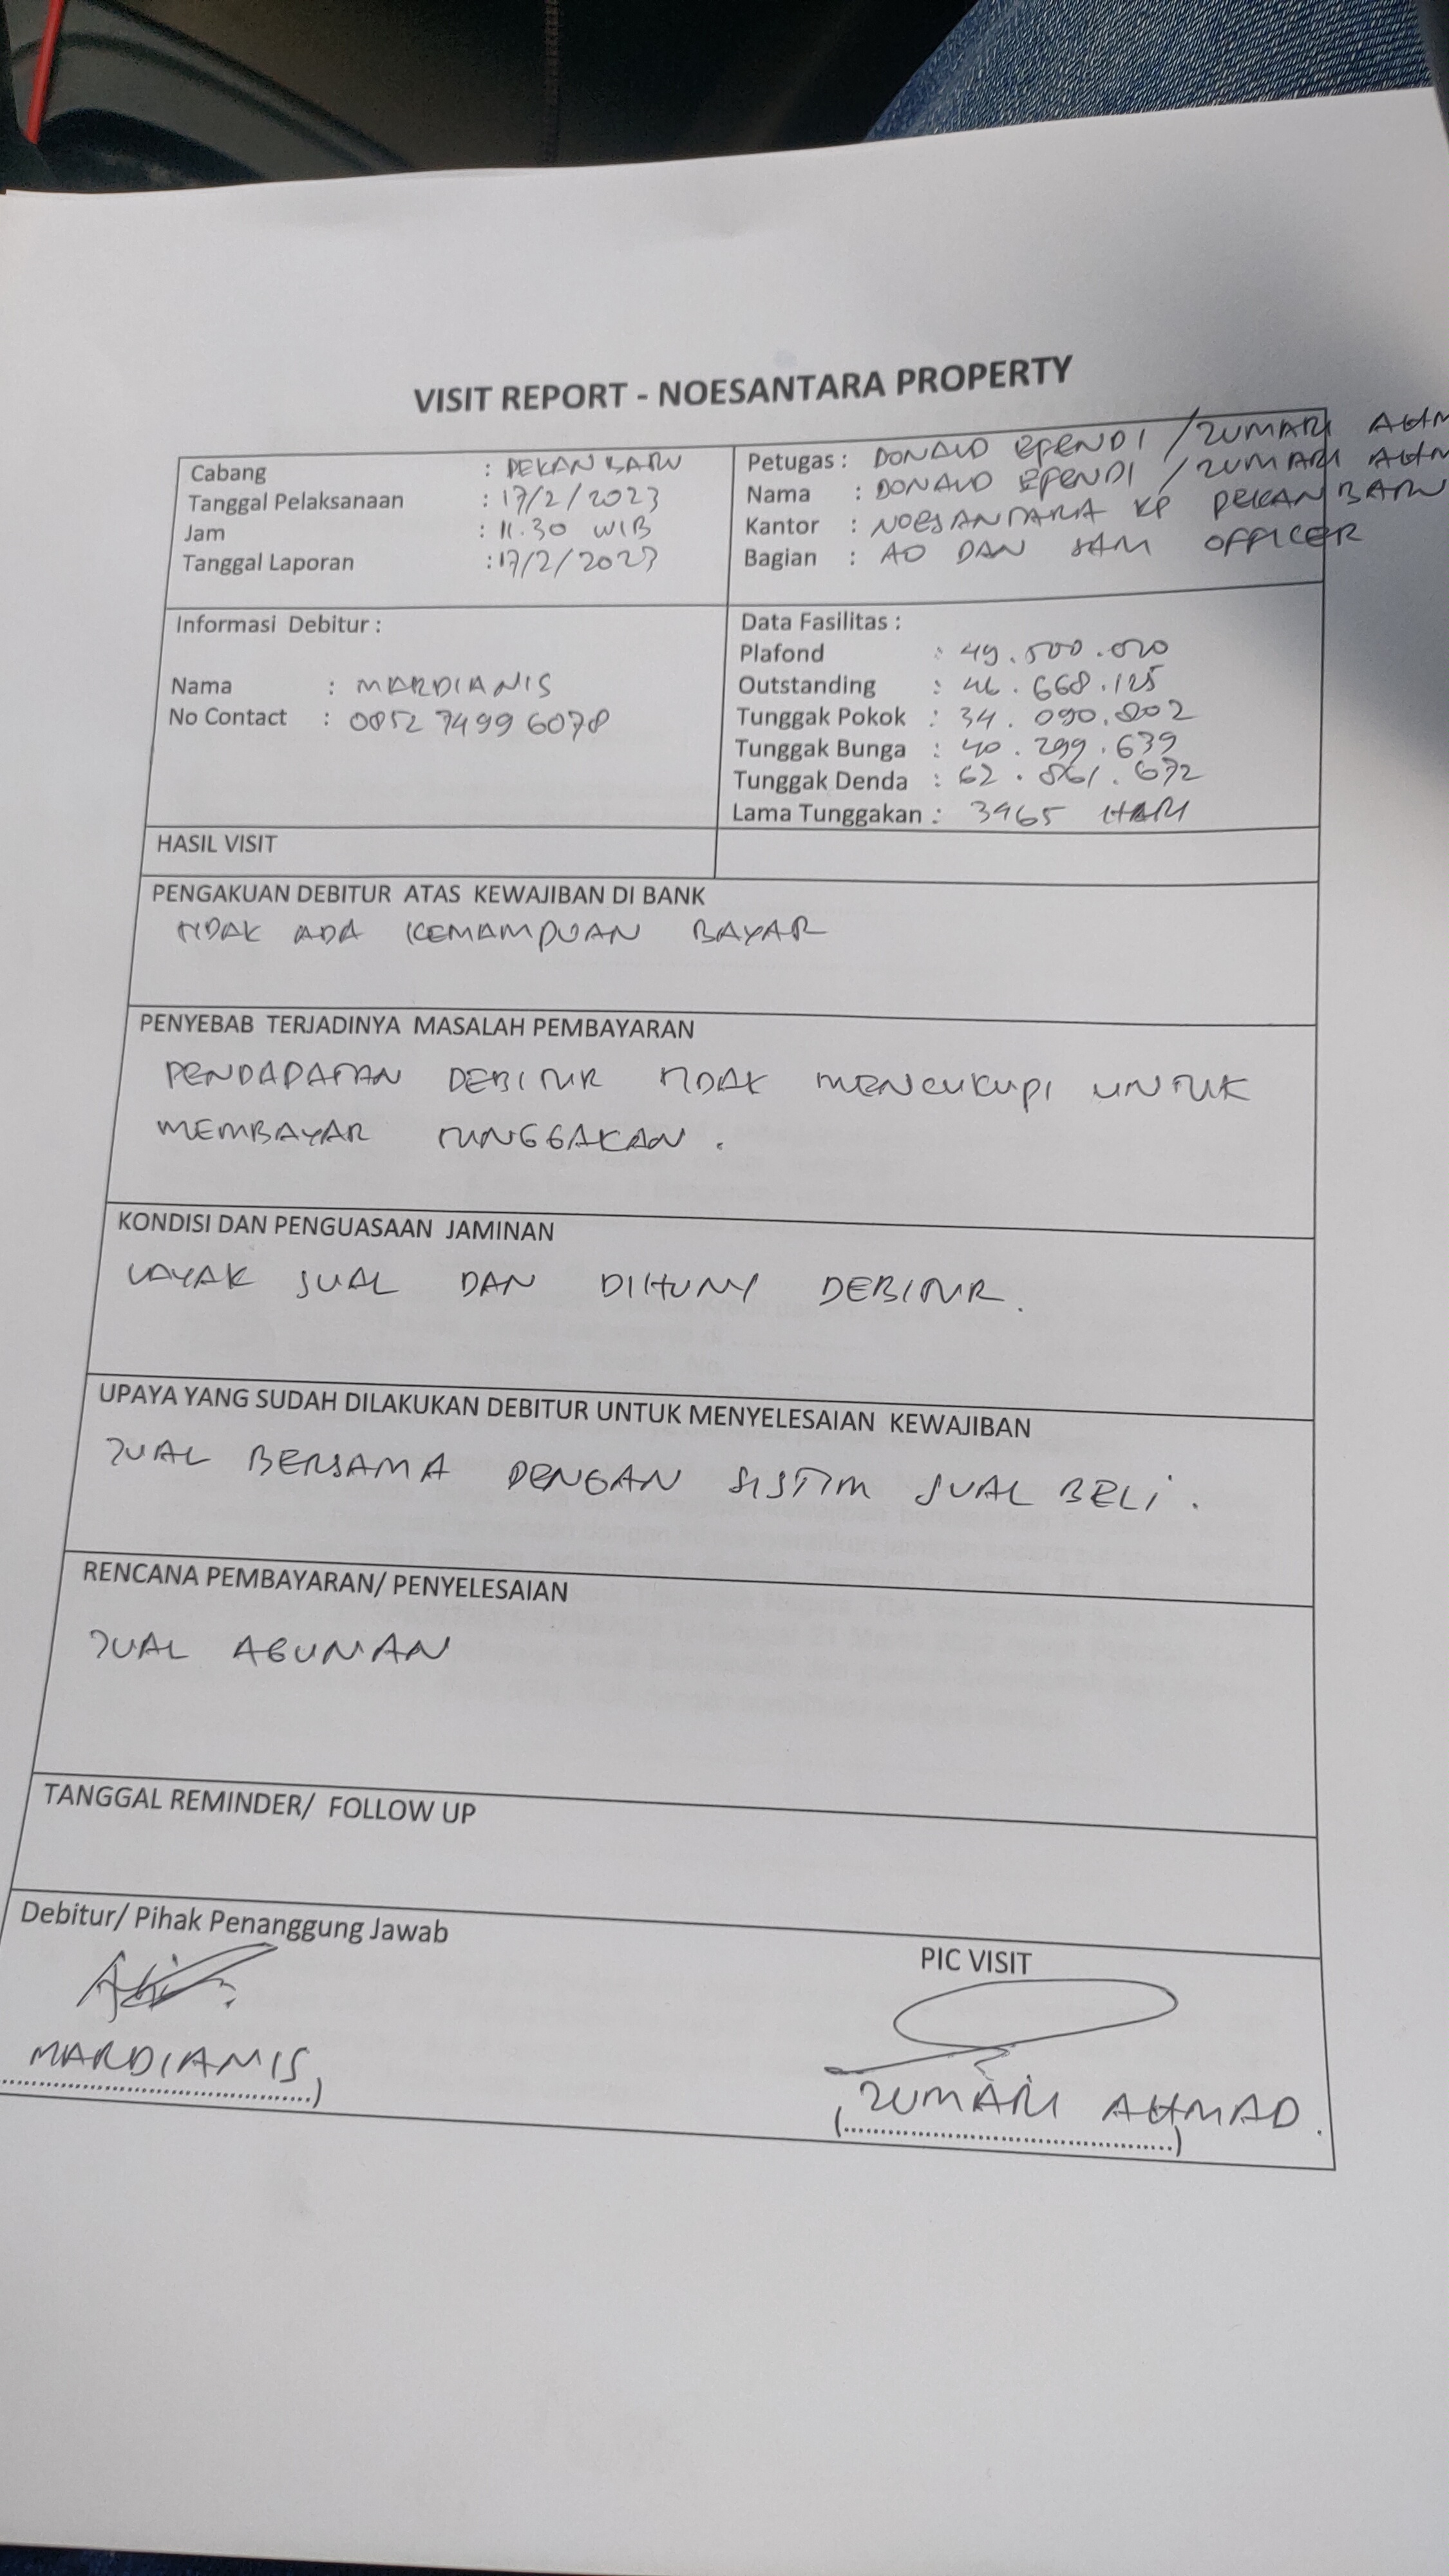 VISIT REPORT - NOESANTARA PROPERTY
Cabang : PEKANBARU
Tanggal Pelaksanaan : 17/2/2023
Jam : 11.30 WIB
Tanggal Laporan : 17/2/2023
Petugas : DONALD EFENDI / ZUMARI AHM
Nama : DONALD EFENDI / ZUMARI AHM
Kantor : NOESANTARA KP PEKANBARU
Bagian : AO DAN SAM OFFICER
Informasi Debitur :
Nama : MARDIANIS
No Contact : 0852 7499 6078
Data Fasilitas :
Plafond : 49.500.000
Outstanding : 46.668.125
Tunggak Pokok : 34.090.802
Tunggak Bunga : 40.299.639
Tunggak Denda : 62.861.672
Lama Tunggakan : 3465 HARI
HASIL VISIT
PENGAKUAN DEBITUR ATAS KEWAJIBAN DI BANK
TIDAK ADA KEMAMPUAN BAYAR
PENYEBAB TERJADINYA MASALAH PEMBAYARAN
PENDAPATAN DEBITUR TIDAK MENCUKUPI UNTUK
MEMBAYAR TUNGGAKAN.
KONDISI DAN PENGUASAAN JAMINAN
LAYAK JUAL DAN DIHUNI DEBITUR.
UPAYA YANG SUDAH DILAKUKAN DEBITUR UNTUK MENYELESAIAN KEWAJIBAN
JUAL BERSAMA DENGAN SISTIM JUAL BELI.
RENCANA PEMBAYARAN/ PENYELESAIAN
JUAL AGUNAN
TANGGAL REMINDER/ FOLLOW UP
Debitur/ Pihak Penanggung Jawab
MARDIANIS
PIC VISIT
ZUMARI AHMAD.